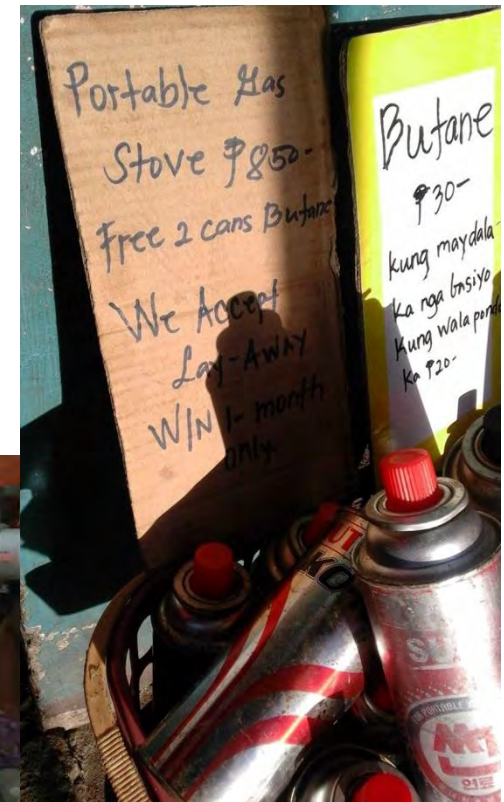 Portable Gas
Stove ₱850-
Free 2 cans Butane
We Accept
Lay-AWAY
W/N 1-month
only.
Butane
₱30-
kung maydala-
ka nga basiyo
kung wala
ka ₱20-
SU
PORTABLE